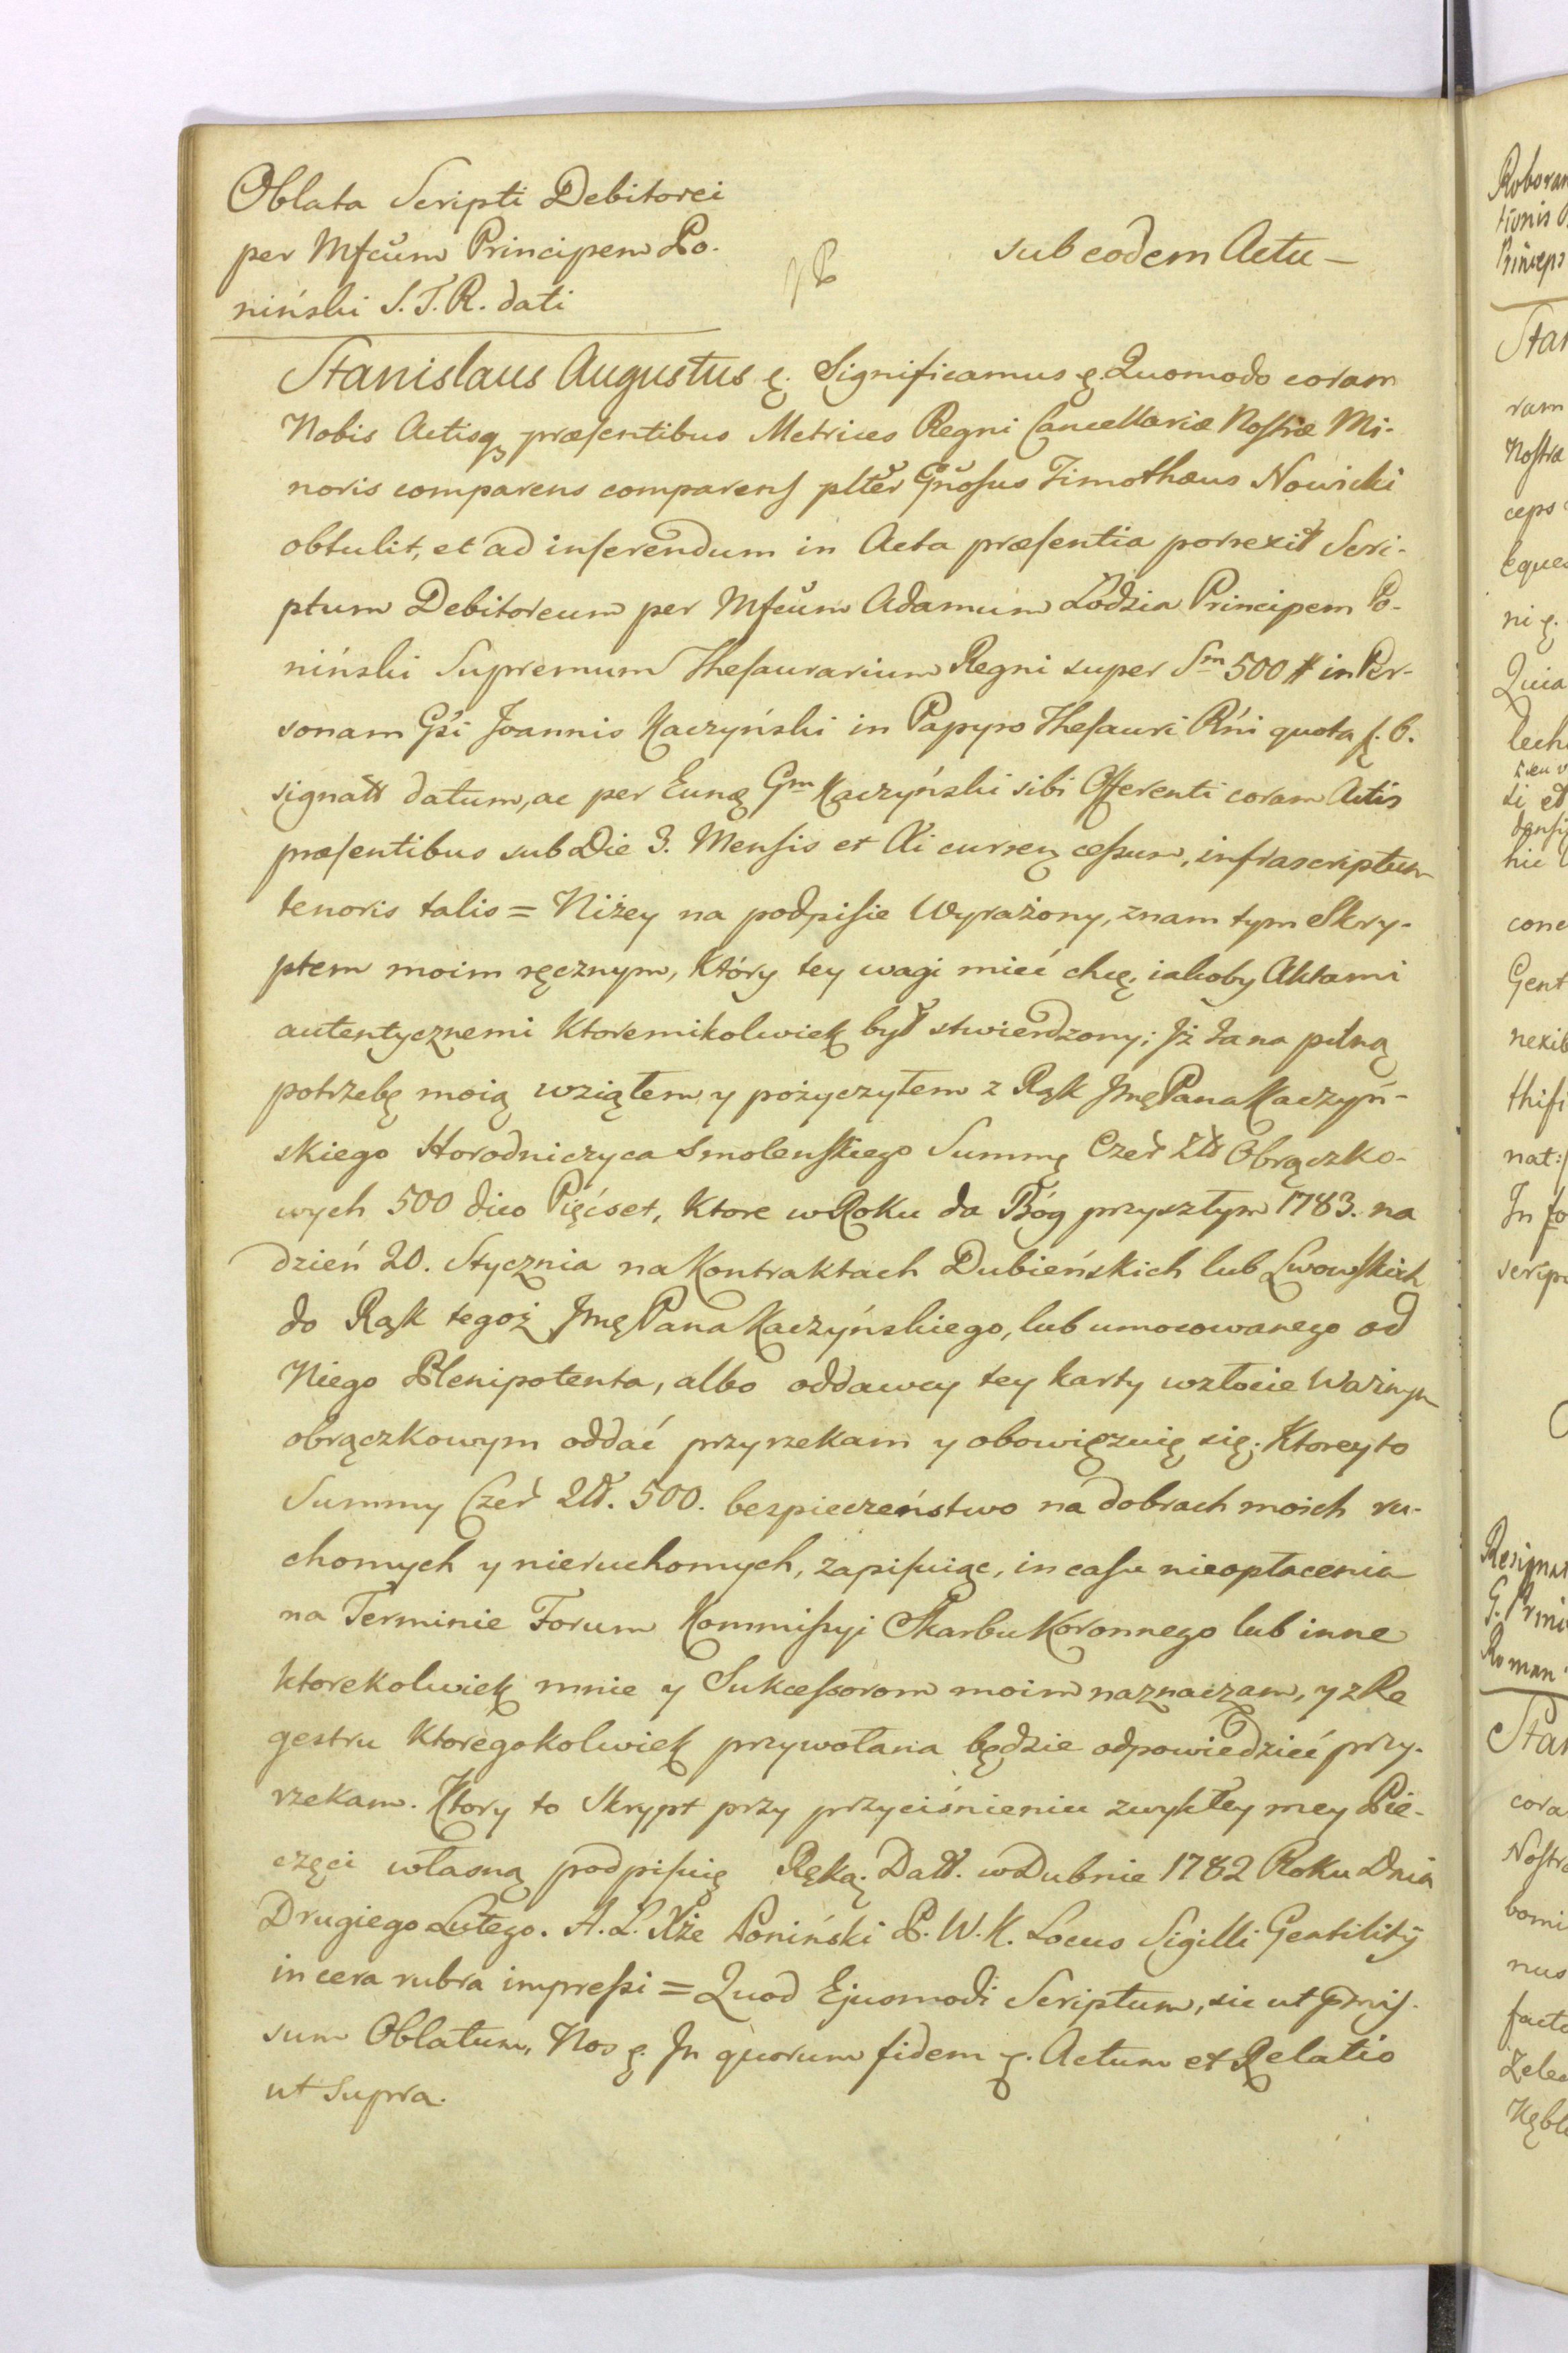 Oblata Scripti Debitorei
per Mfcum Principem Po-
niński S. T. R. dati
sub eodem Actu —
Stanislaus Augustus ę. Significamus ę. Quomodo coram
Nobis Actisqȝ præsentibus Metrices Regni Cancellariæ Nostræ Mi-
noris comparens comparens plter Gnosus Timothæus Nowicki
obtulit, et ad inserendum in Acta præsentia porrexit Scri-
ptum Debitoreum per Mfcum Adamum Łodzia Principem Po-
niński Supremum Thesaurarium Regni super Sm 500 # in Per-
sonam Gsi Joannis Kaczyński in Papyro Thesauri Rni quota f. 6.
signatt datum, ac per Eunę Gm Kaczyński sibi Offerenti coram Actis
præsentibus sub Die 3. Mensis et Ai curreñ cessum, infrascriptum
tenoris talis = Niżey na podpisie Wyrażony, znam tym Skry-
ptem moim ręcznym, Który tey wagi mieć chcę, iakoby Aktami
autentycznemi Ktoremikolwiek był stwierdzony; Jż Ja na pilną
potrzebę moią wziąłem y pożyczyłem z Rąk Jmę Pana Kaczyń-
skiego Horodniczyca Smolenskiego Summę Czer Złł Obrączko-
wych 500 dico Pięćset, Ktore w Roku da Bóg przyszłym 1783. na
dzień 20. Stycznia na Kontraktach Dubieńskich lub Lwowskich
do Rąk tegoż Jmę Pana Kaczyńskiego, lub umocowanego od
Niego Plenipotenta, albo oddawcy tey karty w złocie Ważnym
obrączkowym oddać przyrzekam y obowięzuię się; Ktorey to
Summy Czer Złł. 500. bezpieczeństwo na dobrach moich ru-
chomych y nieruchomych, zapisuiąc, in casu nieopłacenia
na Terminie Forum Kommissyi Skarbu Koronnego lub inne
ktorekolwiek mnie y Sukcessorom moim naznaczam, y z Re
gestru Ktoregokolwiek przywołana będzie odpowiedzieć przy-
rzekam. Ktory to Skrypt przy przyciśnieniu zwykłey mey Pie-
częci własną podpisuię Ręką. Datt. w Dubnie 1782 Roku Dnia
Drugiego Lutego. A. Ł. Xże Poniński P. W. K. Locus Sigilli Gentilitÿ
in cera rubra impressi = Quod Ejusmodi Scriptum, sic ut pmis-
sum Oblatum, Nos ę. Jn quorum fidem ę. Actum et Relatio
ut supra.